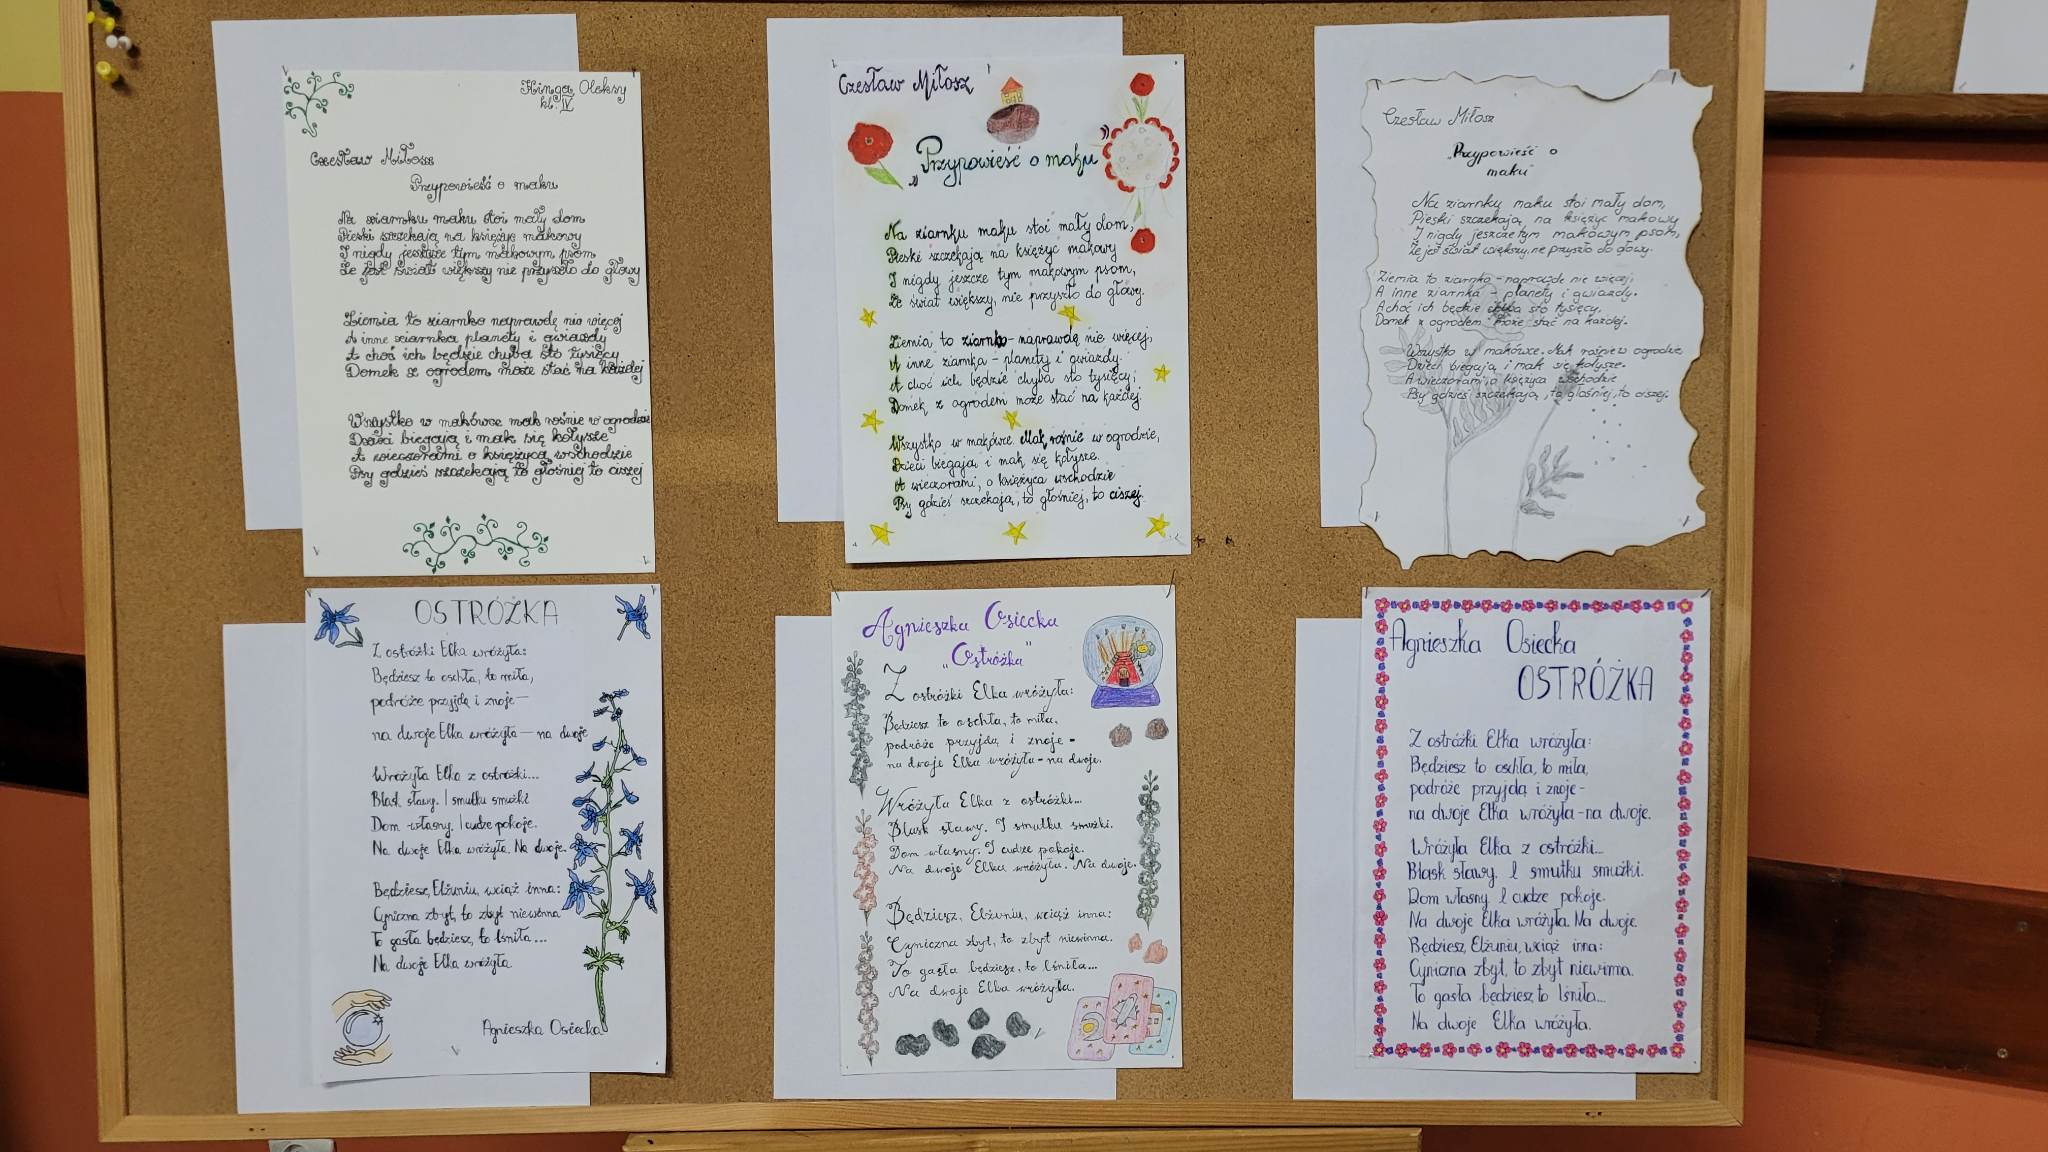 Kinga Oleksy
kl. IV
Czesław Miłosz
Przypowieść o maku
Na ziarnku maku stoi mały dom
Pieski szczekają na księżyc makowy
I nigdy jeszcze tym makowym psom
Że jest świat większy nie przyszło do głowy
Ziemia to ziarnko naprawdę nie więcej
A inne ziarnka planety i gwiazdy
A choć ich będzie chyba sto tysięcy
Domek z ogrodem może stać na każdej
Wszystko w makówce mak rośnie w ogrodzie
Dzieci biegają i mak się kołysze
A wieczorami o księżyca wschodzie
Psy gdzieś szczekają to głośniej to ciszej
Czesław Miłosz
„Przypowieść o maku"
Na ziarnku maku stoi mały dom,
Pieski szczekają na księżyc makowy
I nigdy jeszcze tym makowym psom,
Że świat większy, nie przyszło do głowy.
Ziemia to ziarnko - naprawdę nie więcej,
A inne ziarnka - planety i gwiazdy.
A choć ich będzie chyba sto tysięcy,
Domek z ogrodem może stać na każdej.
Wszystko w makówce. Mak rośnie w ogrodzie,
Dzieci biegają i mak się kołysze.
A wieczorami, o księżyca wschodzie
Psy gdzieś szczekają, to głośniej, to ciszej.
Czesław Miłosz
„Przypowieść o
maku"
Na ziarnku maku stoi mały dom,
Pieski szczekają na księżyc makowy
I nigdy jeszcze tym makowym psom,
Że jest świat większy, nie przyszło do głowy.
Ziemia to ziarnko - naprawdę nie więcej,
A inne ziarnka - planety i gwiazdy.
A choć ich będzie chyba sto tysięcy,
Domek z ogrodem może stać na każdej.
Wszystko w makówce. Mak rośnie w ogrodzie
Dzieci biegają i mak się kołysze.
A wieczorami, o księżyca wschodzie
Psy gdzieś szczekają, to głośniej, to ciszej.
OSTRÓŻKA
Z ostróżki Elka wróżyła:
Będziesz to oschła, to miła,
podróże przyjdą i znoje—
na dwoje Elka wróżyła — na dwoje
Wróżyła Elka z ostróżki...
Blask sławy. I smutku smużki
Dom własny. I cudze pokoje.
Na dwoje Elka wróżyła. Na dwoje.
Będziesz, Elżuniu, wciąż inna:
Cyniczna zbyt, to zbyt niewinna
To gasła będziesz, to lśniła...
Na dwoje Elka wróżyła
Agnieszka Osiecka
Agnieszka Osiecka
„Ostróżka"
Z ostróżki Elka wróżyła:
Będziesz to oschła, to miła,
podróże przyjdą i znoje -
na dwoje Elka wróżyła - na dwoje.
Wróżyła Elka z ostróżki...
Blask sławy. I smutku smużki.
Dom własny. I cudze pokoje.
Na dwoje Elka wróżyła. Na dwoje.
Będziesz, Elżuniu, wciąż inna:
Cyniczna zbyt, to zbyt niewinna.
To gasła będziesz, to lśniła...
Na dwoje Elka wróżyła.
Agnieszka Osiecka
OSTRÓŻKA
Z ostróżki Elka wróżyła:
Będziesz to oschła, to miła,
podróże przyjdą i znoje -
na dwoje Elka wróżyła - na dwoje.
Wróżyła Elka z ostróżki...
Blask sławy. I smutku smużki.
Dom własny. I cudze pokoje.
Na dwoje Elka wróżyła. Na dwoje.
Będziesz, Elżuniu, wciąż inna:
Cyniczna zbyt, to zbyt niewinna.
To gasła będziesz, to lśniła...
Na dwoje Elka wróżyła.